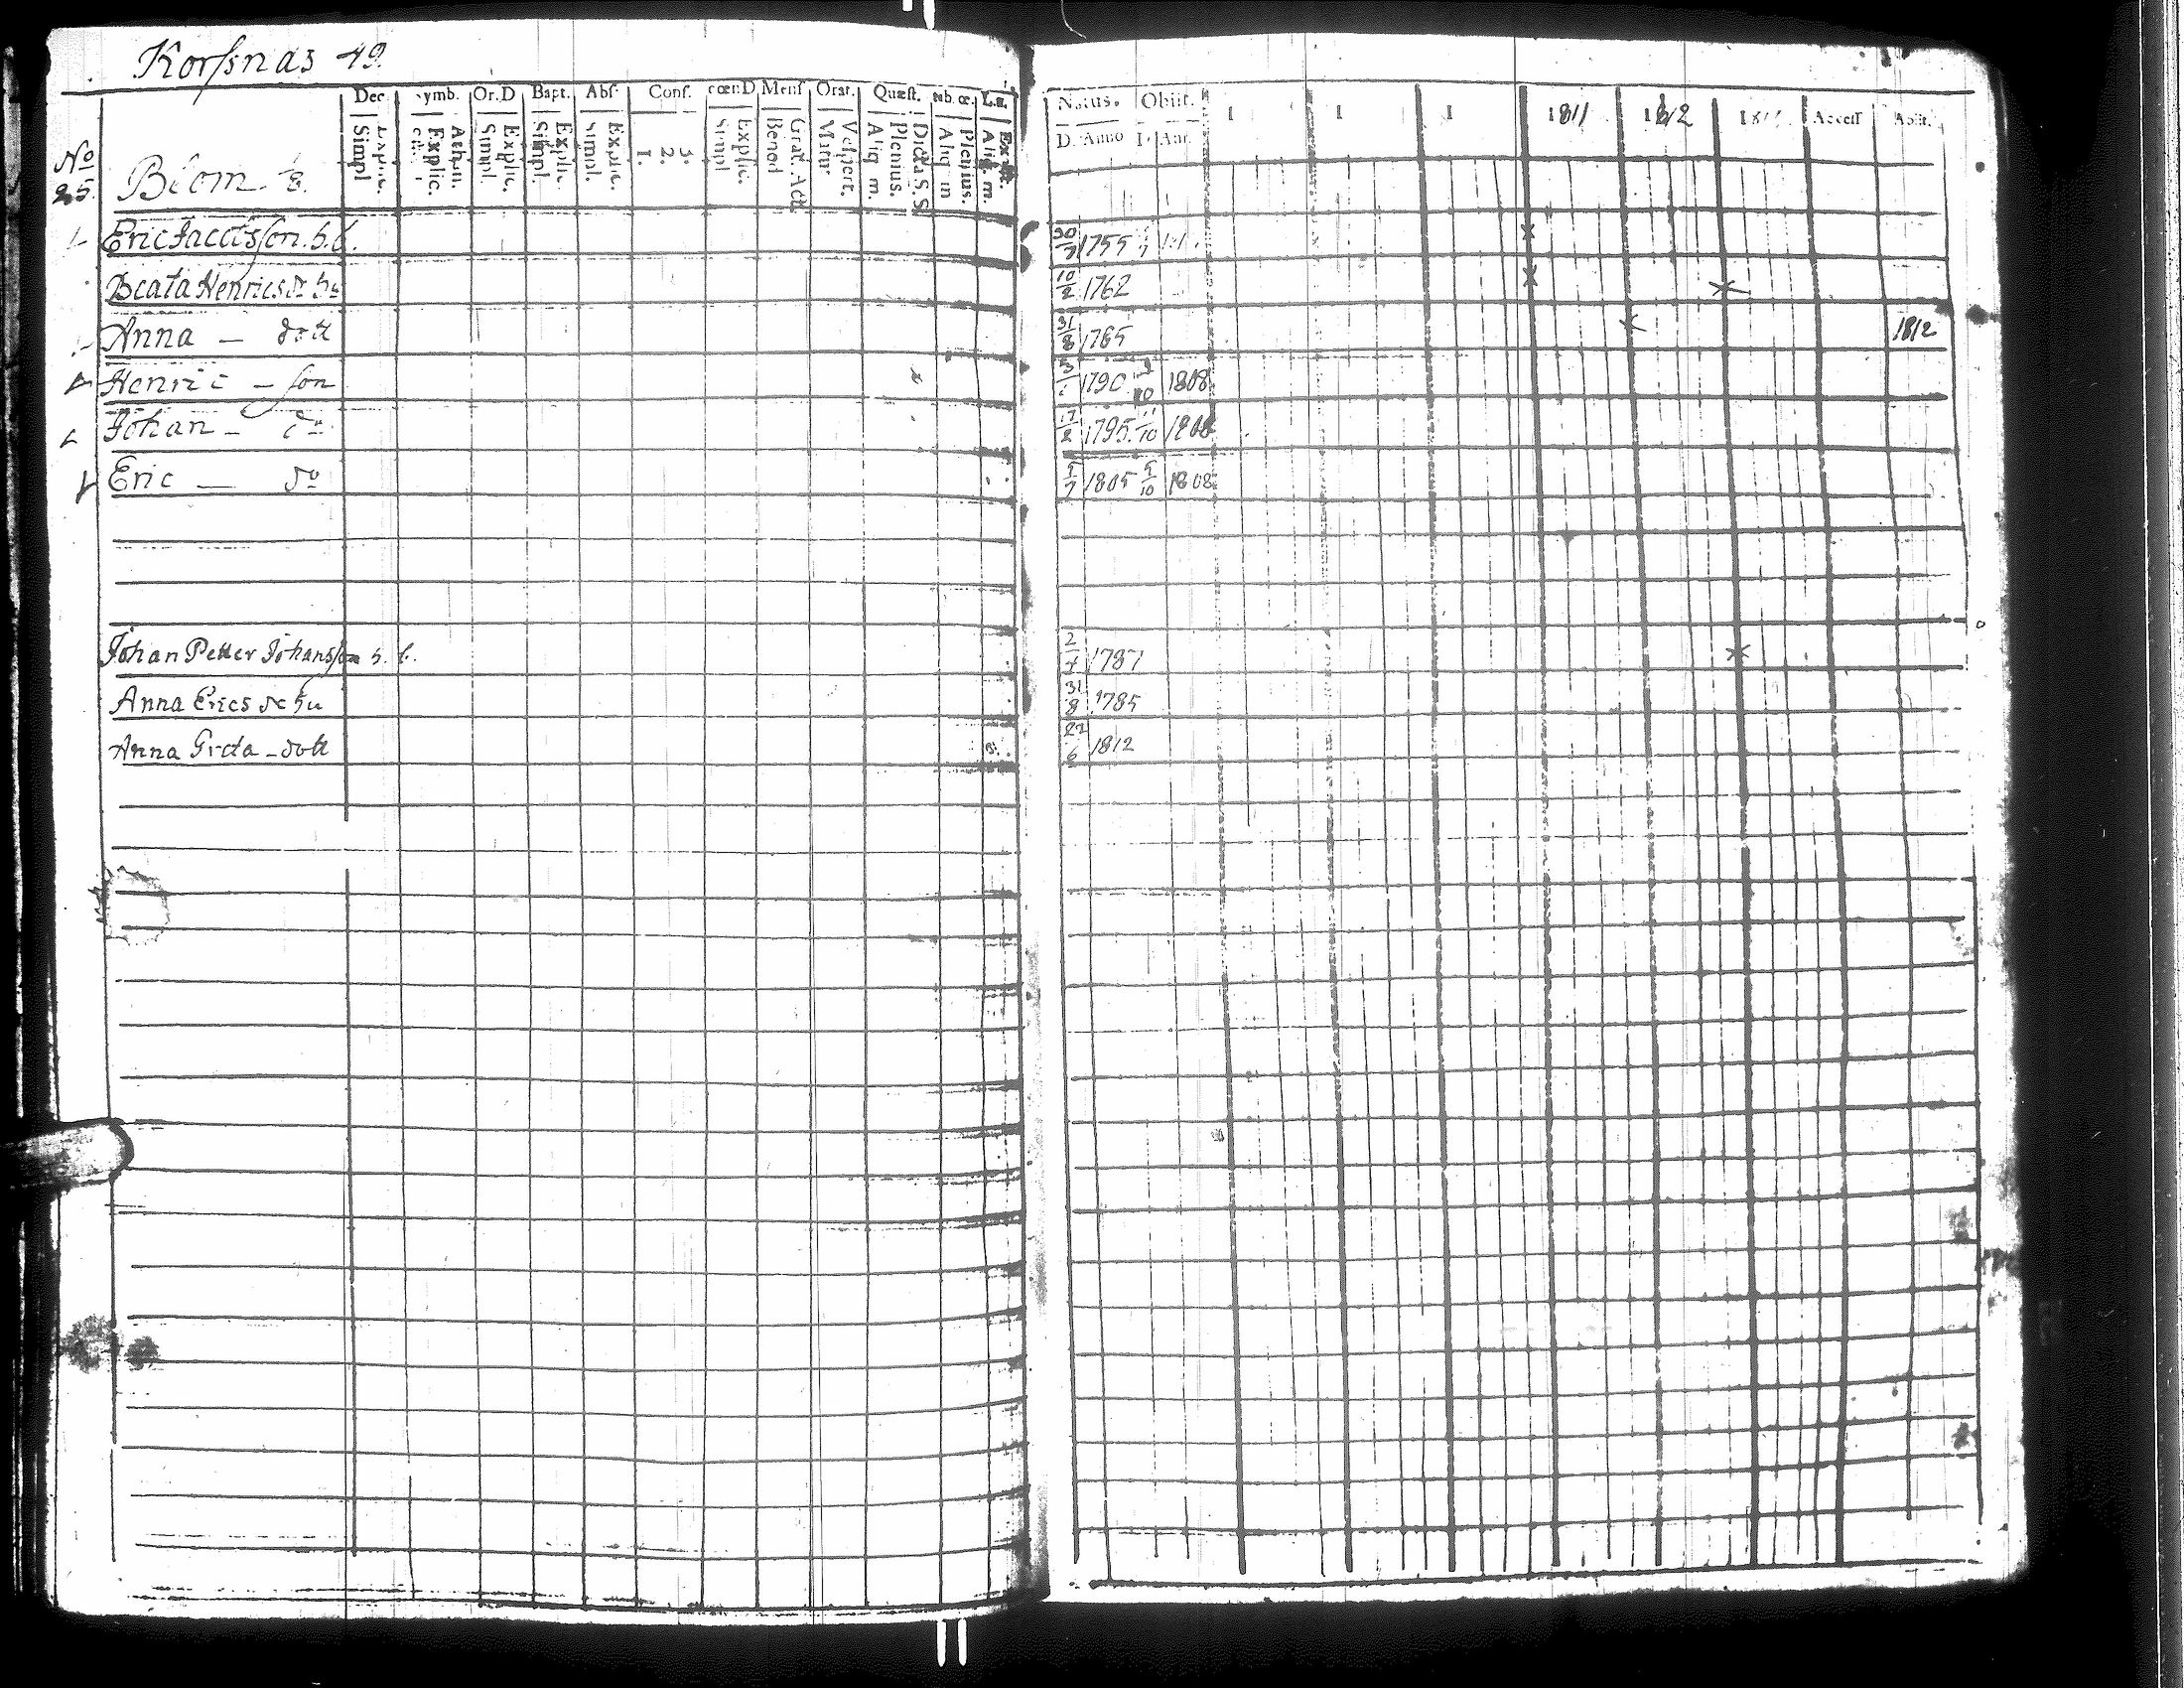 Korssnäs 49.
Dec. Symb. Or. D Bapt. Abs. Conf. cœn: D Mens Orat. Quæst.
Simpl Explic. Explic. Athan. Simpl. Explic. Simpl. Explic. Simpl. Explic. 1. 2. 3. Simpl Explic. Bened Grat. Act. Matut Vespert. Aliq. m. Plenius. Dicta S. S. Aliq m Plenius. Aliq. m.
Natus. Obiit. 1 1 1 1811 1812 181 Access Abiit.
D. Anno D. Ann.
No 25. Blom
Eric Jacobsson. b. 30/7 1755
Beata Henrics dr hu 10/2 1762
Anna — dott 31/8 1785 1812
Henric — son 1790 1808
Johan — do 17/2 1795. 11/10 1808
Eric — do 5/7 1805 5/10 1808
Johan Petter Johansson b. 2/7 1787
Anna Erics dr hu 31/8 1785
Anna Greta — dott 27/6 1812